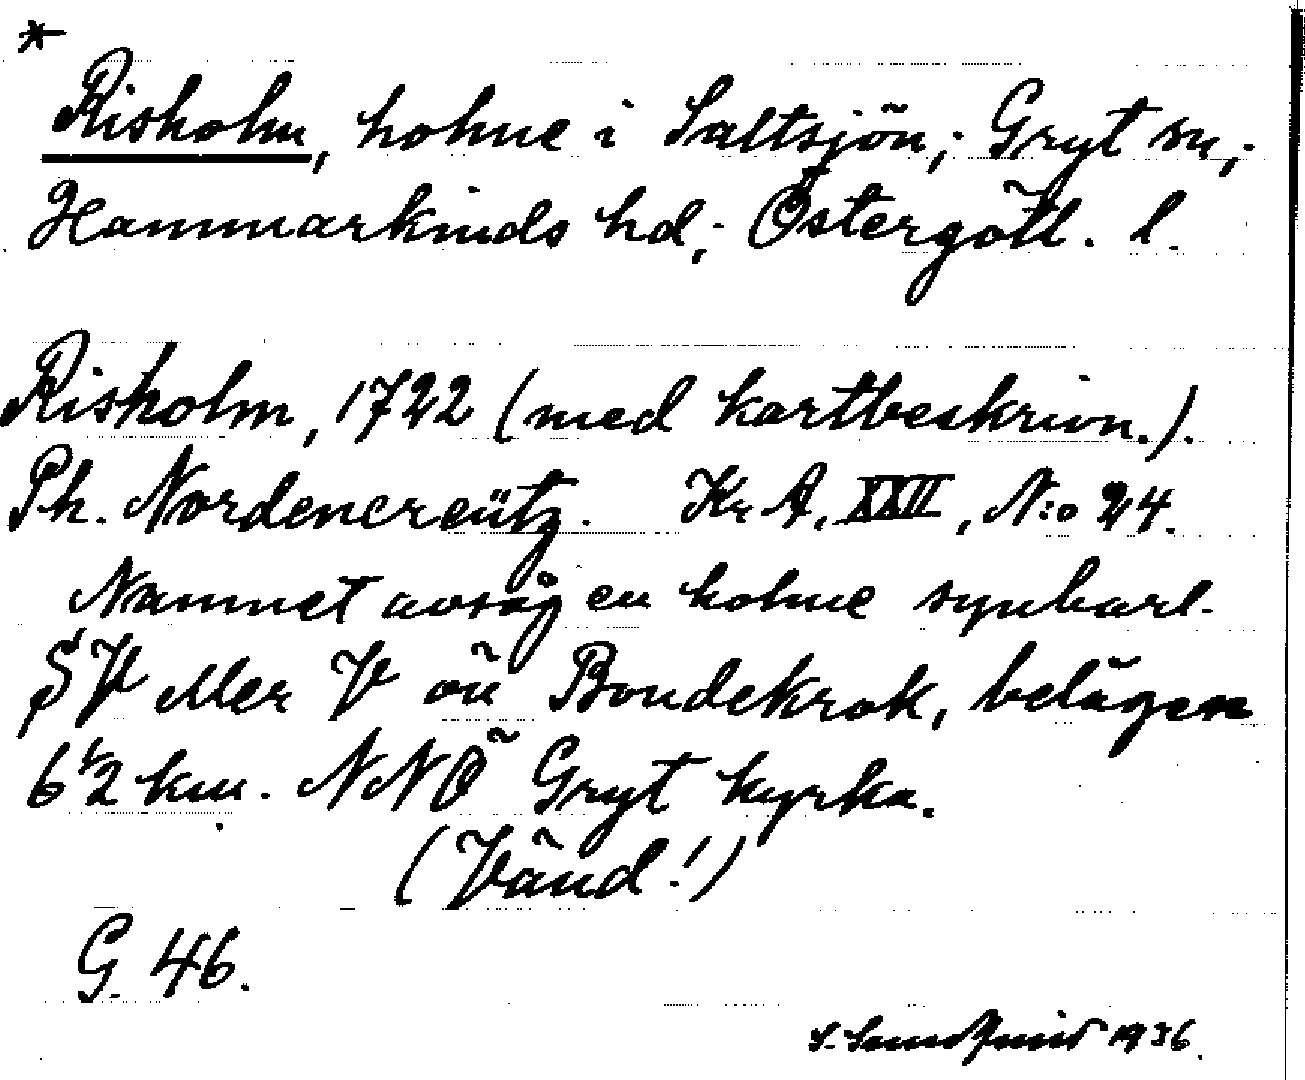 *
Risholm, holme i Saltsjön; Gryt sn;
Hammarkinds hd; Östergötl. l.
Risholm, 1722 (med kartbeskrivn.).
Ph. Nordencreütz. Kr A, XXII, N:o 24.
Namnet avsåg en holme synbarl.
SV eller V om Bondekrok, belägen
6 1/2 km. NNÖ Gryt kyrka.
(Vänd!)
G. 46.
S. 1936.